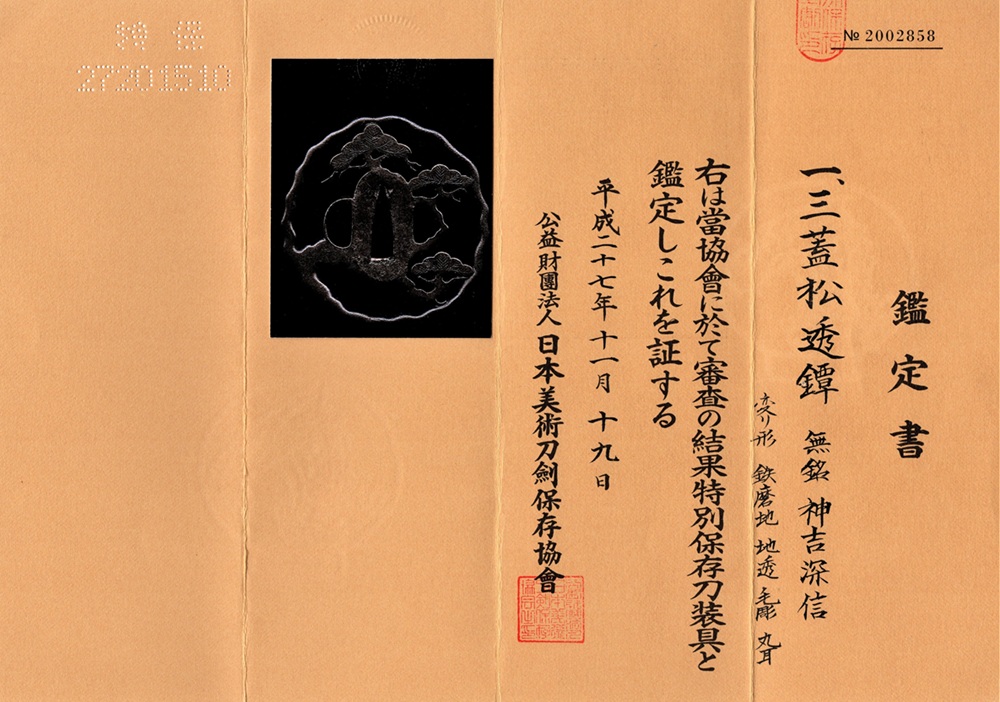 № 2002858
鑑定書
一、三蓋松透鐔 無銘 神吉深信
変り形 鉄磨地 地透 毛彫 丸耳
右は當協會に於て審査の結果特別保存刀装具と
鑑定しこれを証する
平成二十七年十一月十九日
公益財團法人 日本美術刀劍保存協會
27201510